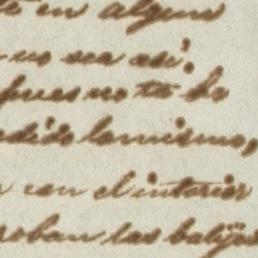 te en algun
no sea asi.
pues no te lo
dido lo mismo,
con el interior
roban las balijas